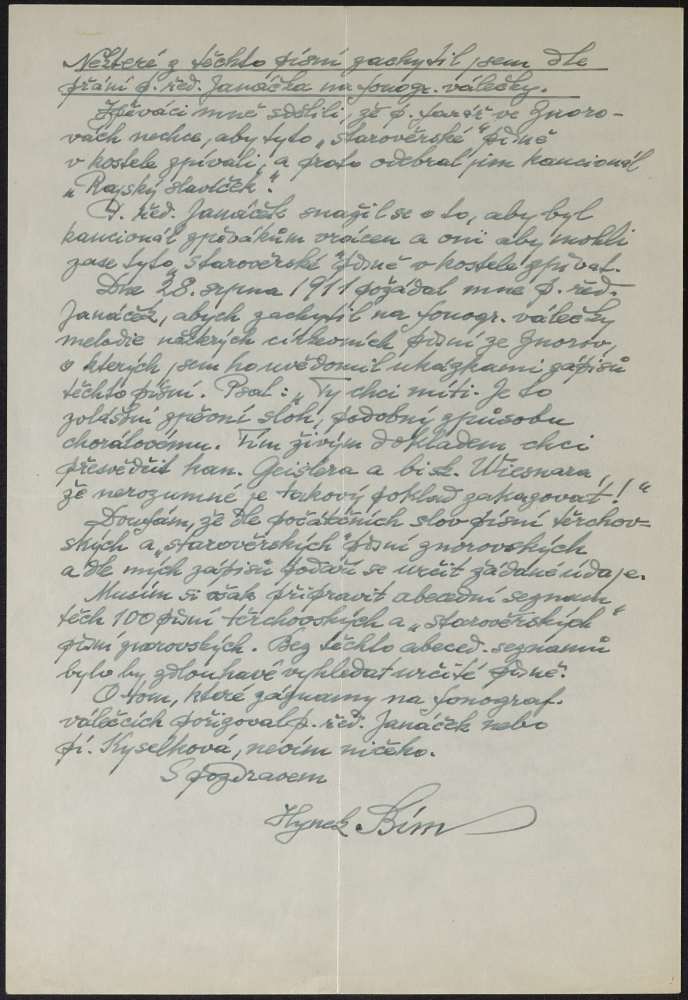 Některé z těchto písní zachytil jsem dle
přání p. řed. Janáčka na fonogr. válečky.
Zpěváci mně sdělili, že p. farář ve Znoro-
vách nechce, aby tyto „starověrské" písně
v kostele zpívali, a proto odebral jim kancionál
„Rajský slavíček".
P. řed. Janáček snažil se o to, aby byl
kancionál zpěvákům vrácen a oni aby mohli
zase tyto „starověrské" písně v kostele zpívat.
Dne 28. srpna 1911 požádal mne p. řed.
Janáček, abych zachytil na fonogr. válečky
melodie některých církevních písní ze Znorov,
o kterých jsem ho uvědomil ukázkami zápisů
těchto písní. Psal: „Ty chci míti. Je to
zvláštní zpěvní sloh, podobný způsobu
chorálovému. Tím živým dokladem chci
přesvědčit kan. Geislera a bisk. Wiesnara,
že nerozumné je takový poklad zakazovat!"
Doufám, že dle počátečních slov písní těrchov-
ských a „starověrských" písní znorovských
a dle mých zápisů podaří se určit žádané údaje.
Musím si však připravit abecední seznam
těch 100 písní těrchovských a „starověrských"
písní znorovských. Bez těchto abeced. seznamů
bylo by zdlouhavé vyhledat určité písně.
O tom, které záznamy na fonograf.
válečcích pořizoval p. řed. Janáček nebo
pí. Kyselková, nevím ničeho.
S pozdravem
Hynek Bím